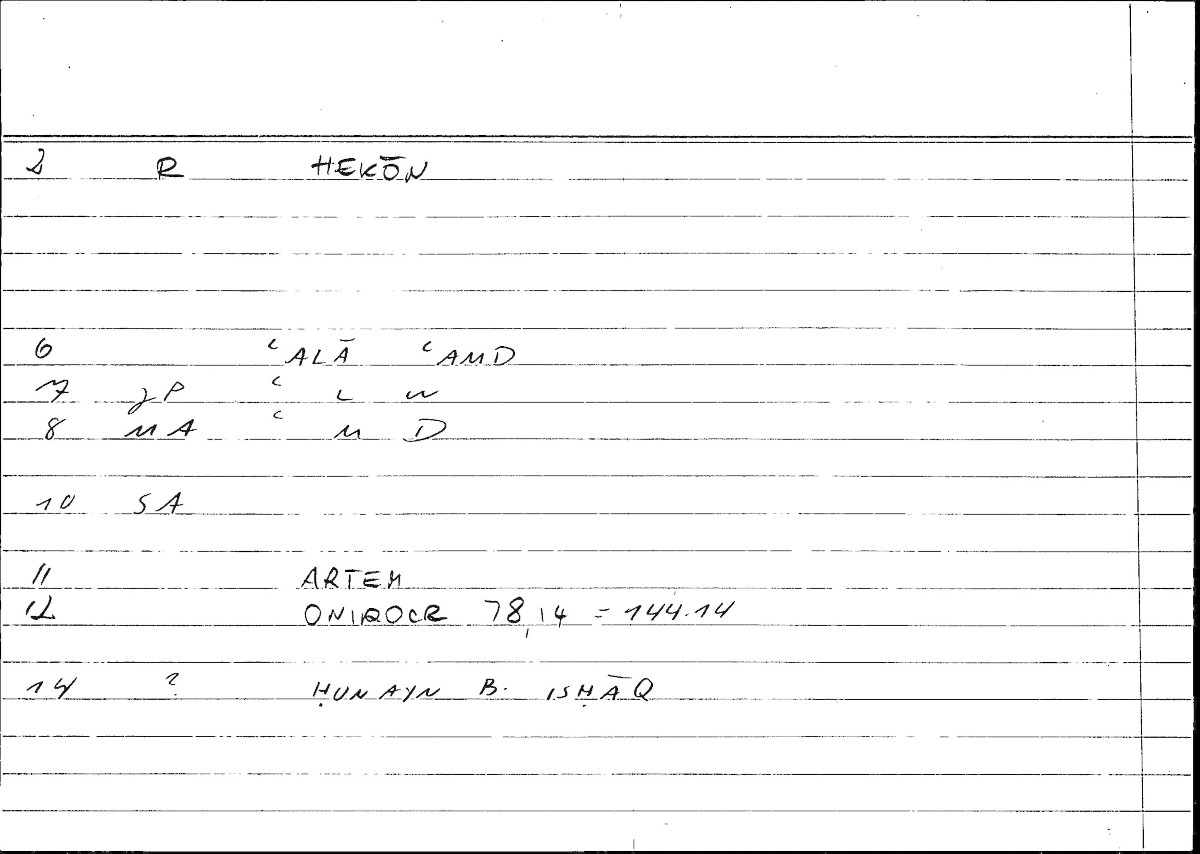 2 R HEKŌN
6 ʿALĀ ʿAMD
7 JP ʿ L W
8 MA ʿ M D
10 SA
11 ARTEM
12 ONIROCR 78,14 = 144.14
14 ? ḤUNAYN B. ISḤĀQ